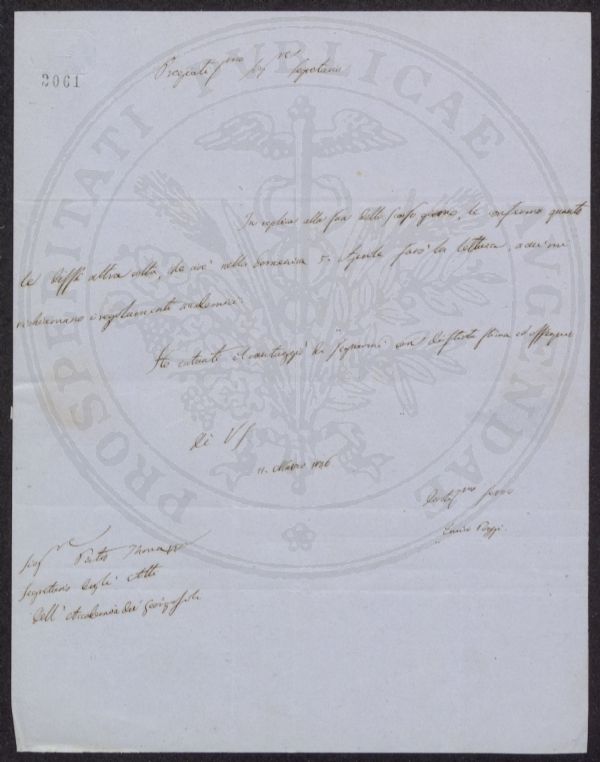 2061
PROSPERITATI PUBLICAE AUGENDAE
Pregiat.mo Sig.re Segretario
In replica alla sua dello scorso giorno, le confermo quanto
le dissi altra volta, che cioè nella domenica 5. Aprile farò la lettura a cui mi
richiamano i regolamenti accademici.
Ho intanto il vantaggio di segnarmi con distinta stima ed ossequio
di VS
11. Marzo 1846
Devot.mo servo
Enrico Poggi
Sig.r Pietro
Segretario degli Atti
dell'Accademia dei Georgofili